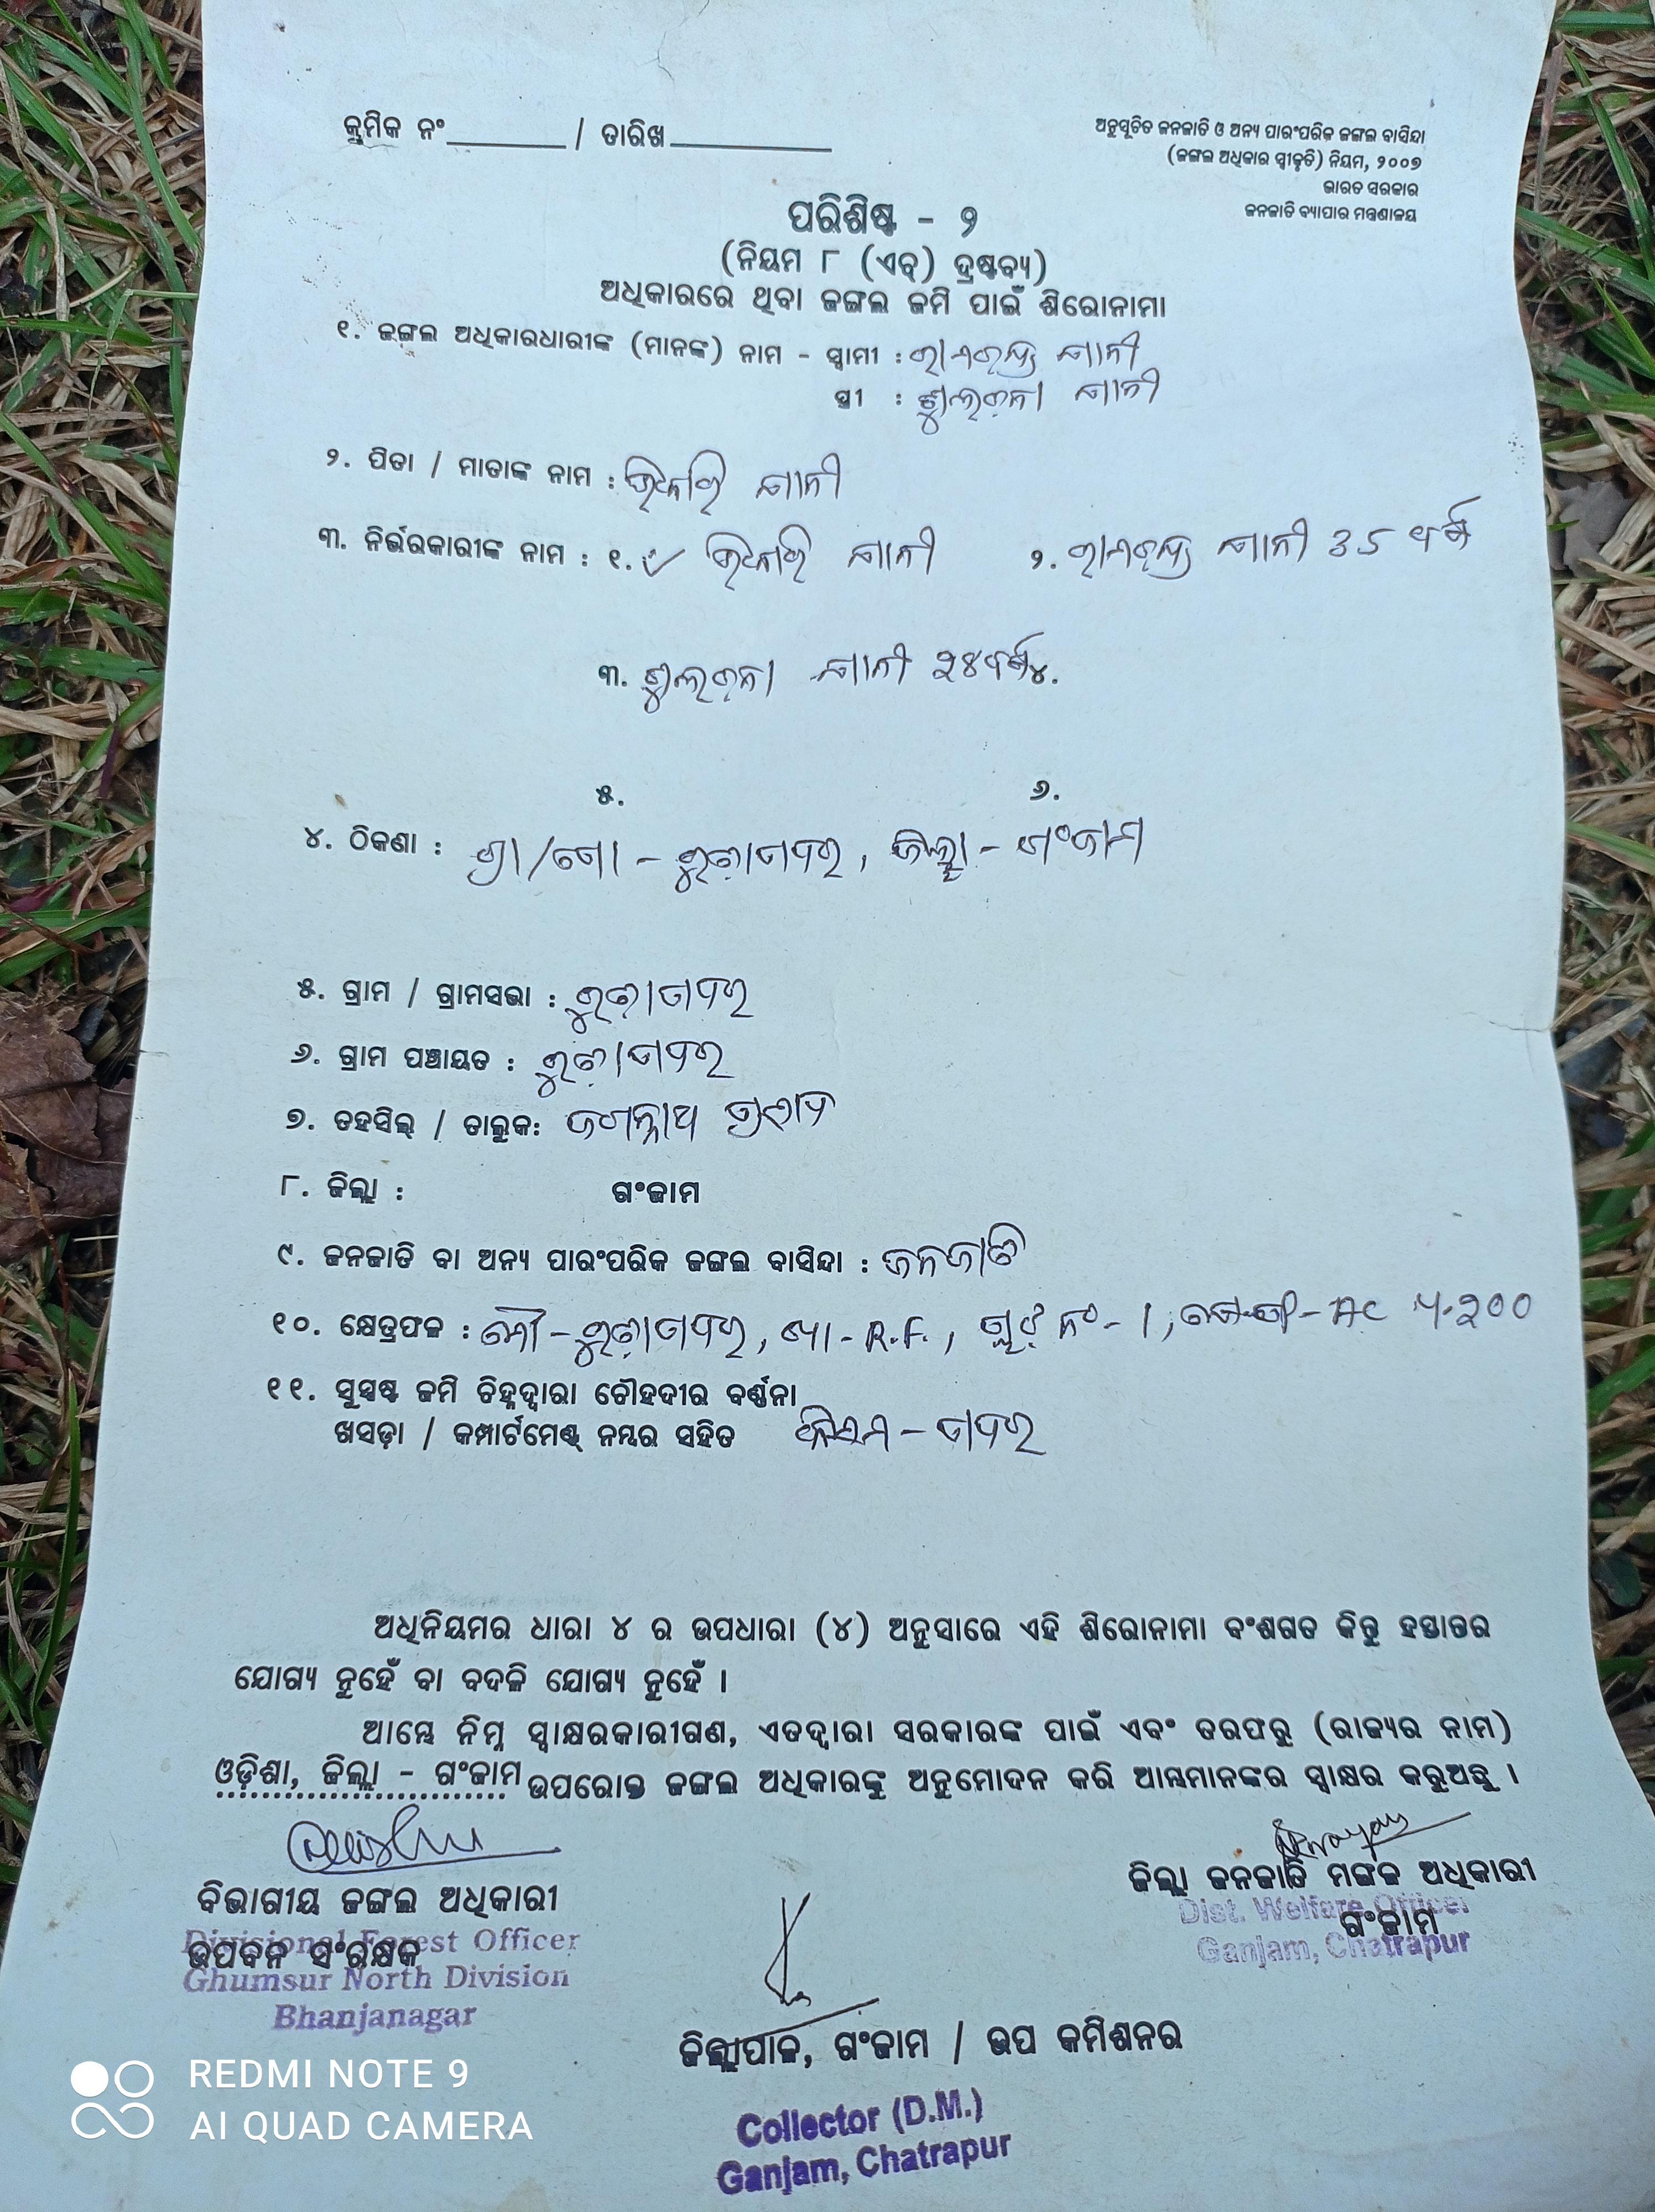 କ୍ରମିକ ନଂ ________ / ତାରିଖ __________
ଅନୁସୂଚିତ ଜନଜାତି ଓ ଅନ୍ୟ ପାରଂପରିକ ଜଙ୍ଗଲ ବାସିନ୍ଦା
(ଜଙ୍ଗଲ ଅଧିକାର ସ୍ୱୀକୃତି) ନିୟମ, ୨୦୦୭
ଭାରତ ସରକାର
ଜନଜାତି ବ୍ୟାପାର ମନ୍ତ୍ରଣାଳୟ
ପରିଶିଷ୍ଟ - ୨
(ନିୟମ ୮ (ଏଚ୍) ଦ୍ରଷ୍ଟବ୍ୟ)
ଅଧିକାରରେ ଥିବା ଜଙ୍ଗଲ ଜମି ପାଇଁ ଶିରୋନାମା
୧. ଜଙ୍ଗଲ ଅଧିକାରଧାରୀଙ୍କ (ମାନଙ୍କ) ନାମ - ସ୍ୱାମୀ :
ସ୍ତ୍ରୀ :
୨. ପିତା / ମାତାଙ୍କ ନାମ : ଭିକାରି
୩. ନିର୍ଭରକାରୀଙ୍କ ନାମ : ୧. ଭିକାରି ୨. 35 ବର୍ଷ
୩. ୨୪ ବର୍ଷ ୪.
୫. ୬.
୪. ଠିକଣା : ଗ୍ରା/ପୋ - , ଜିଲ୍ଲା - ଗଂଜାମ
୫. ଗ୍ରାମ / ଗ୍ରାମସଭା :
୬. ଗ୍ରାମ ପଞ୍ଚାୟତ :
୭. ତହସିଲ୍ / ତାଲୁକ: ଜଗନ୍ନାଥ ପ୍ରସାଦ
୮. ଜିଲ୍ଲା : ଗଂଜାମ
୯. ଜନଜାତି ବା ଅନ୍ୟ ପାରଂପରିକ ଜଙ୍ଗଲ ବାସିନ୍ଦା : ଜନଜାତି
୧୦. କ୍ଷେତ୍ରଫଳ : ମୌ - , ଖା - R.F., ପ୍ଲଟ୍ ନଂ - 1, AC ୨୦୦
୧୧. ସୁସ୍ପଷ୍ଟ ଜମି ଚିହ୍ନଦ୍ୱାରା ଚୌହଦୀର ବର୍ଣ୍ଣନା
ଖସଡ଼ା / କମ୍ପାର୍ଟମେଣ୍ଟ୍ ନମ୍ବର ସହିତ କିସମ -
ଅଧିନିୟମର ଧାରା ୪ ର ଉପଧାରା (୪) ଅନୁସାରେ ଏହି ଶିରୋନାମା ବଂଶଗତ କିନ୍ତୁ ହସ୍ତାନ୍ତର
ଯୋଗ୍ୟ ନୁହେଁ ବା ବଦଳି ଯୋଗ୍ୟ ନୁହେଁ ।
ଆମ୍ଭେ ନିମ୍ନ ସ୍ୱାକ୍ଷରକାରୀଗଣ, ଏତଦ୍ୱାରା ସରକାରଙ୍କ ପାଇଁ ଏବଂ ତରଫରୁ (ରାଜ୍ୟର ନାମ)
ଓଡ଼ିଶା, ଜିଲ୍ଲା - ଗଂଜାମ ଉପରୋକ୍ତ ଜଙ୍ଗଲ ଅଧିକାରଙ୍କୁ ଅନୁମୋଦନ କରି ଆମ୍ଭମାନଙ୍କର ସ୍ୱାକ୍ଷର କରୁଅଛୁ ।
ବିଭାଗୀୟ ଜଙ୍ଗଲ ଅଧିକାରୀ
ଉପବନ ସଂରକ୍ଷକ
Divisional Forest Officer
Ghumsur North Division
Bhanjanagar
ଜିଲ୍ଲା ଜନଜାତି ମଙ୍ଗଳ ଅଧିକାରୀ
ଗଂଜାମ
Dist. Welfare Officer
Ganjam, Chatrapur
ଜିଲ୍ଲାପାଳ, ଗଂଜାମ / ଉପ କମିଶନର
Collector (D.M.)
Ganjam, Chatrapur
REDMI NOTE 9
AI QUAD CAMERA